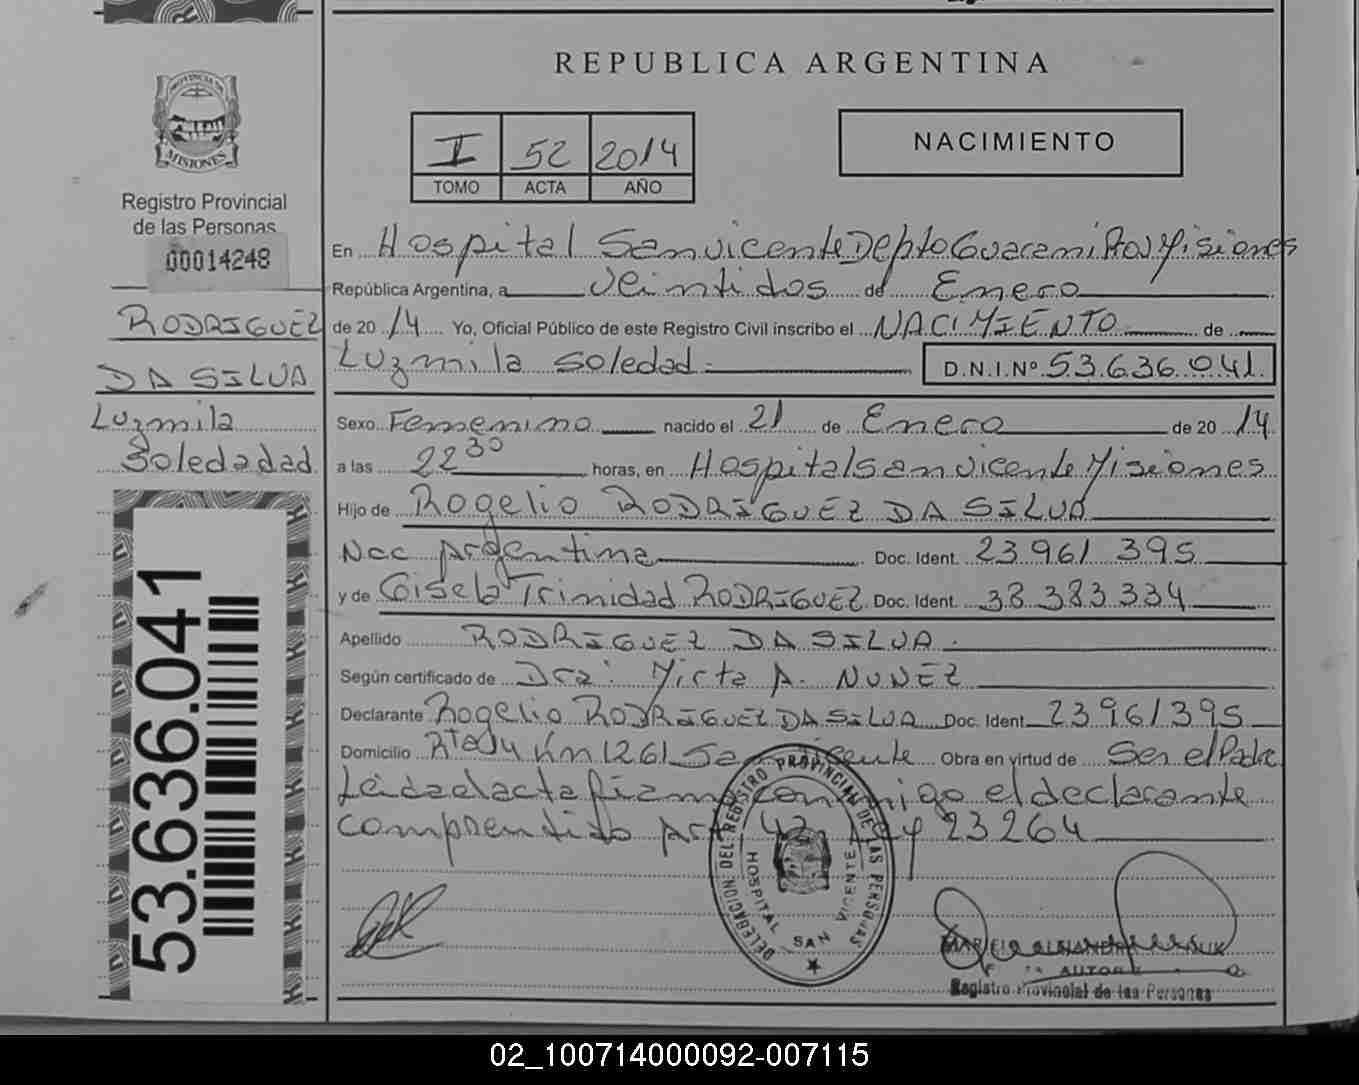 REPUBLICA ARGENTINA
PROVINCIA
MISIONES
Registro Provincial
de las Personas
00014248
RODRIGUEZ
DA SILVA
Luzmila
Soledadad
53.636.041
I 52 2014
TOMO ACTA AÑO
NACIMIENTO
En Hospital San vicente Depto Guarani Misiones
República Argentina, a veintidos de Enero
de 20 14 Yo, Oficial Público de este Registro Civil inscribo el NACIMIENTO de
Luzmila Soledad
D.N.I.Nº 53.636.041
Sexo Femenino nacido el 21 de Enero de 20 14
a las 22 30 horas, en Hospital san vicente Misiones
Hijo de Rogelio RODRIGUEZ DA SILVA
Nac Argentina Doc. Ident. 23961 395
y de Gisela Trinidad RODRIGUEZ Doc. Ident. 38 383 334
Apellido RODRIGUEZ DA SILVA
Según certificado de Dra: Mirta A. NUÑEZ
Declarante Rogelio RODRIGUEZ DA SILVA Doc. Ident 23961395
Domicilio Km 1261 San vicente Obra en virtud de Ser el Padre
Leida el acta firma con migo el declarante
comprendido Art 42 Ley 23264
DELEGACION DEL REGISTRO PROVINCIAL DE LAS PERSONAS
HOSPITAL SAN VICENTE
Registro Provincial de las Personas
02_100714000092-007115